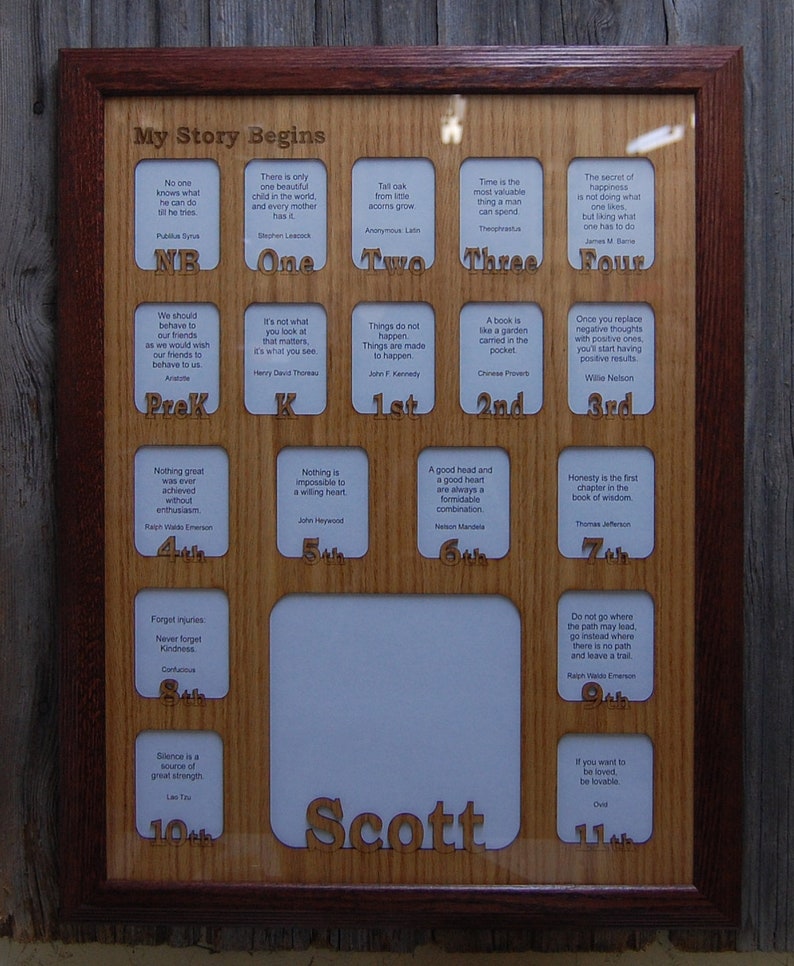 My Story Begins
No one
knows what
he can do
till he tries.
Publilius Syrus
NB
There is only
one beautiful
child in the world,
and every mother
has it.
Stephen Leacock
One
Tall oak
from little
acorns grow.
Anonymous: Latin
Two
Time is the
most valuable
thing a man
can spend.
Theophrastus
Three
The secret of
happiness
is not doing what
one likes,
but liking what
one has to do
James M. Barrie
Four
We should
behave to
our friends
as we would wish
our friends to
behave to us.
Aristotle
PreK
It's not what
you look at
that matters,
it's what you see.
Henry David Thoreau
K
Things do not
happen.
Things are made
to happen.
John F. Kennedy
1st
A book is
like a garden
carried in the
pocket.
Chinese Proverb
2nd
Once you replace
negative thoughts
with positive ones,
you'll start having
positive results.
Willie Nelson
3rd
Nothing great
was ever
achieved
without
enthusiasm.
Ralph Waldo Emerson
4th
Nothing is
impossible to
a willing heart.
John Heywood
5th
A good head and
a good heart
are always a
formidable
combination.
Nelson Mandela
6th
Honesty is the first
chapter in the
book of wisdom.
Thomas Jefferson
7th
Forget injuries:
Never forget
Kindness.
Confucious
8th
Do not go where
the path may lead,
go instead where
there is no path
and leave a trail.
Ralph Waldo Emerson
9th
Silence is a
source of
great strength.
Lao Tzu
10th
Scott
If you want to
be loved,
be lovable.
Ovid
11th